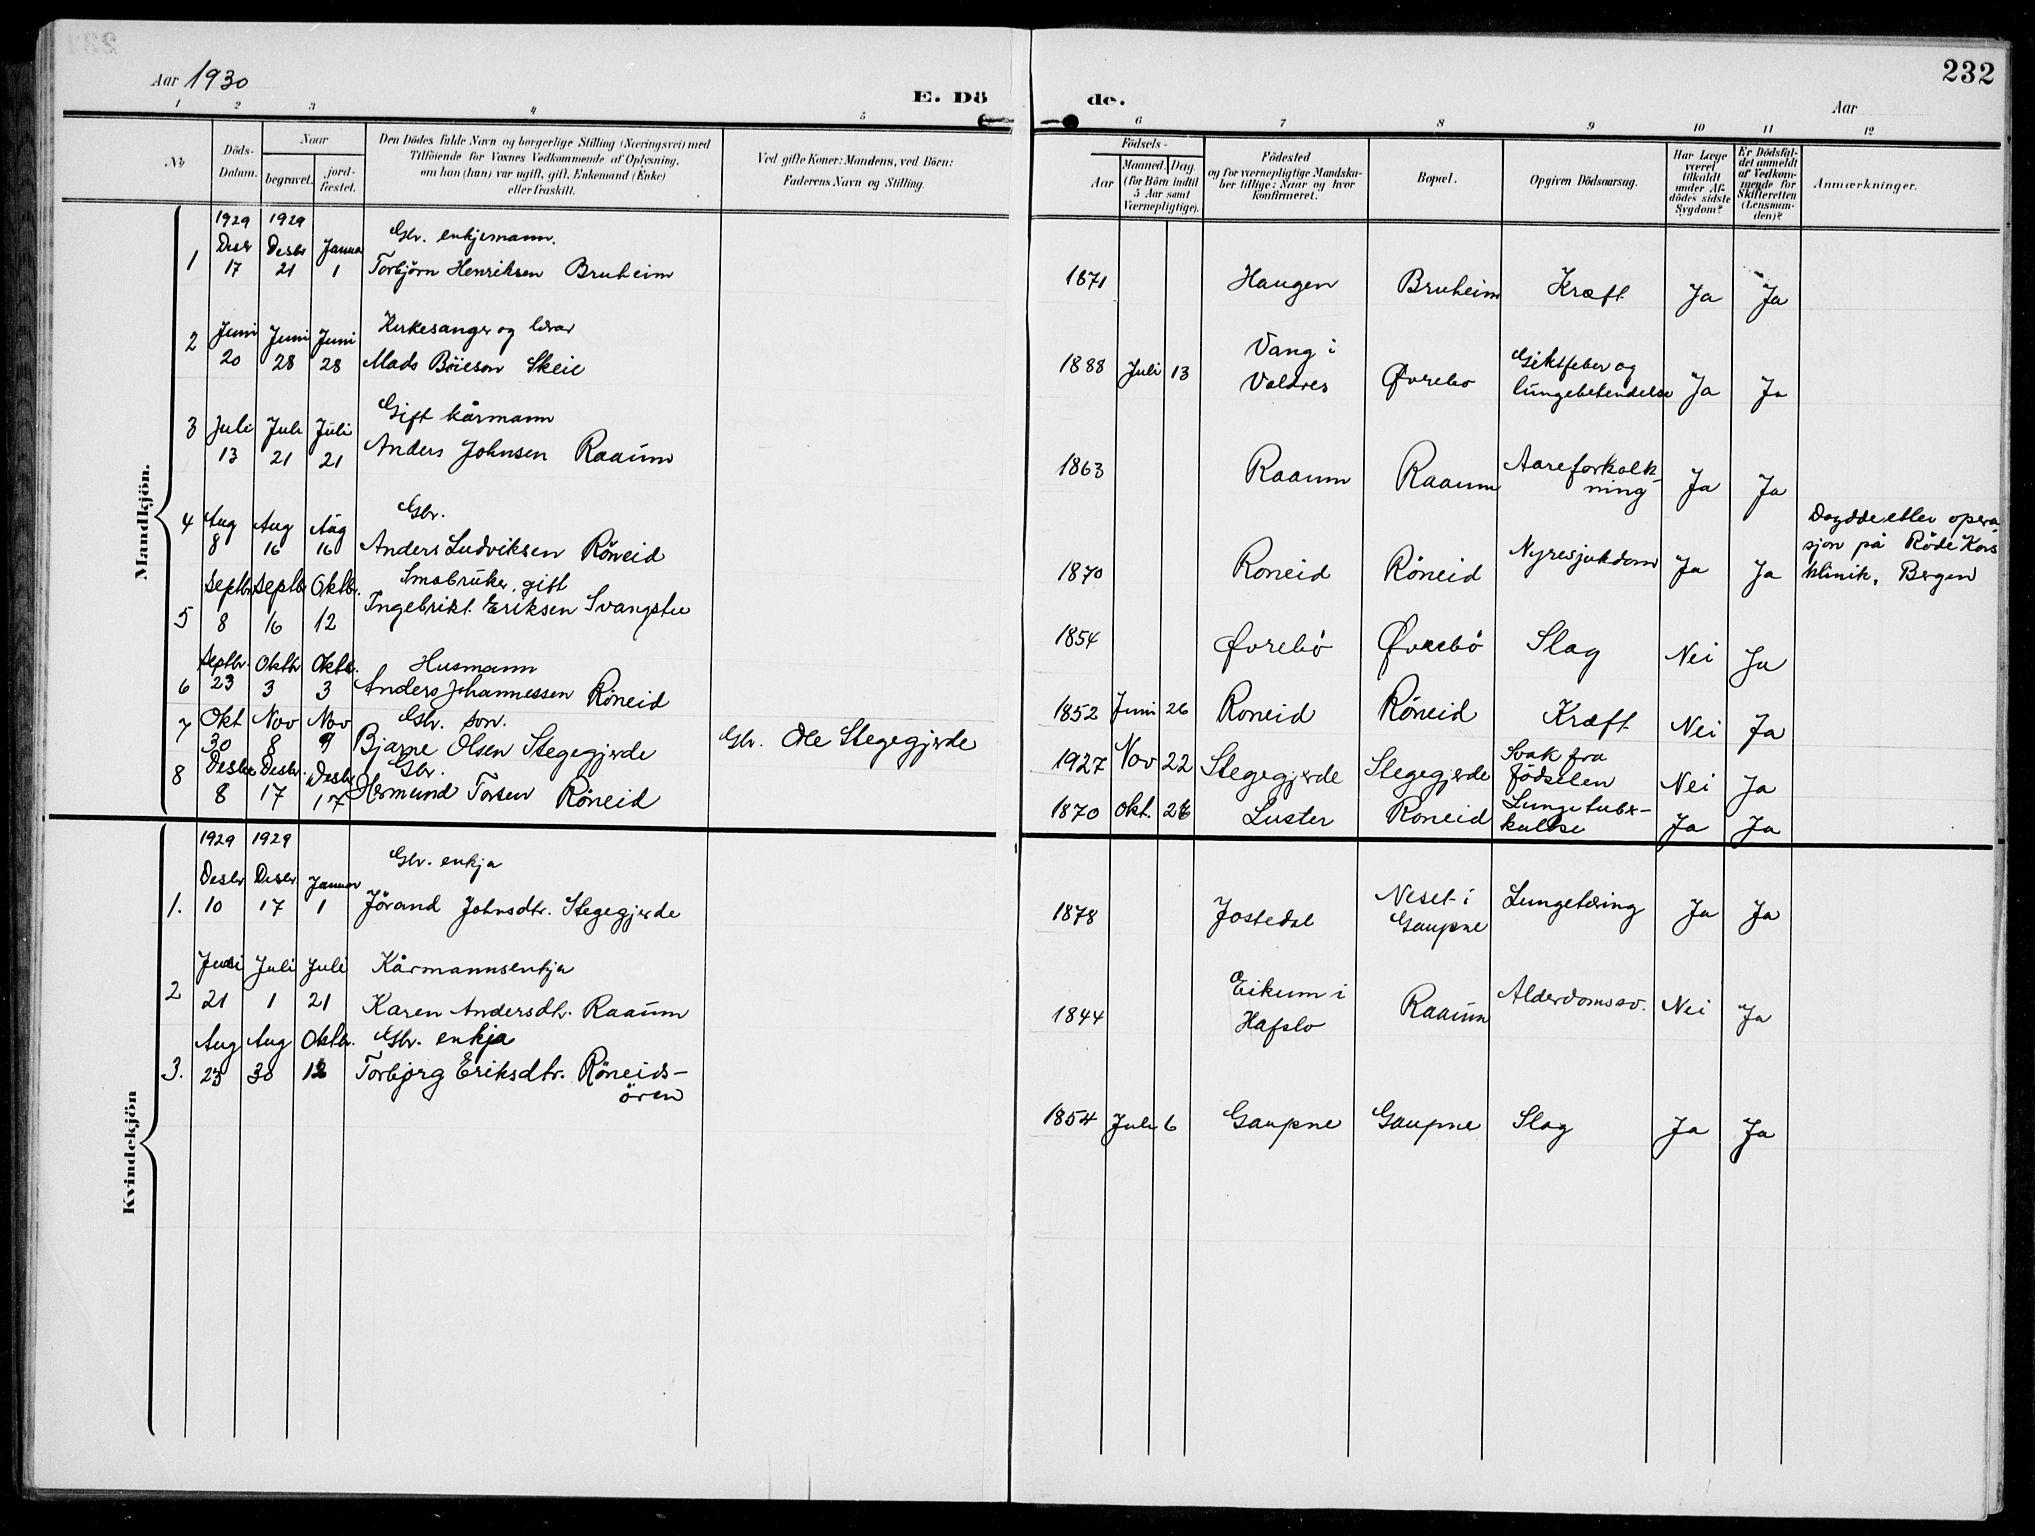 232
Aar 1930
E. Dö
de.
Aar
1 2 3 4 5
6 7 8 9 10 11 12
No
Döds-
Datum.
Naar
begravet.
jord-
fæstet.
Den Dödes fulde Navn og borgerlige Stilling (Næringsvei) med
Tilföiende for Voxnes Vedkommende af Oplysning,
om han (hun) var ugift, gift, Enkemand (Enke)
eller fraskilt.
Ved gifte Koner: Mandens, ved Börn:
Faderens Navn og Stilling.
Födsels-
Aar
Maaned. Dag.
(for Börn indtil
5 Aar samt
Værnepligtige).
Födested
og for værnepligtige Mandska-
ber tillige: Naar og hvor
konfirmeret.
Bopæl.
Opgiven Dödsaarsag.
Har Læge
været
tilkaldt
under Af-
dödes sidste
Sygdom?
Er Dödsfal-
det anmeldt
af Vedkom-
mende for
Skifteretten
(Lensman-
den)?
Anmærkninger.
Mandkjön.
1929 1929
Desbr Desbr Januar Gbr. enkjemann.
1 17 21 1 Torbjørn Henriksen Bruheim 1871 Haugen Bruheim Kræft Ja Ja
Juni Juni Juni Kirkesanger og lærar Vang i Giktfeber og
2 20 28 28 Mads Böieson Skeie 1888 Juli 13 Valdres Øvrebø lungebetendelse Ja Ja
Juli Juli Juli Gift kårmann
3 13 21 21 Anders Johnsen Raaum 1863 Raaum Raaum Aareforkalk-
ning Ja Ja
Aug Aug Aug Gbr. Doydde etter opera-
4 8 16 16 Anders Ludviksen Röneid 1870 Roneid Röneid Nyresjukdom Ja Ja sjon på Röde Kors
klinik, Bergen
Septbr Septbr Oktbr. Småbruker, gift
5 8 16 12 Ingebrikt Eriksen Svangstu 1854 Øvrebö Øvrebö Slag Nei Ja
Septbr. Oktbr Oktbr. Husmann
6 23 3 3 Anders Johannessen Röneid 1852 Juni 26 Roneid Röneid Kræft Nei Ja
Okt Nov Nov Gbr. son. Svak fra
7 30 8 9 Bjarne Olsen Stegegjerde Gbr. Ole Stegegjerde 1927 Nov 22 Stegegjerde Stegegjerde födselen Nei Ja
Desbr Desbr. Desbr Gbr. Lungetuber-
8 8 17 17 Hermund Torsen Röneid 1870 Okt. 26 Luster Roneid kulose Ja Ja
Kvindekjön
1929 1929
Desbr Desbr. Januar Gbr. enkja Neset i
1. 10 17 1 Jörand Johnsdtr. Stegegjerde 1878 Jostedal Gaupne Lungetæring Ja Ja
Juni Juli Juli Kårmannsenkja Eikum i
2 21 1 21 Karen Andersdtr. Raaum 1844 Hafslo Raaum Alderdomssv. Nei Ja
Aug Aug Oktbr. Gbr. enkja
3. 23 30 12 Torbjørg Eriksdtr. Röneids-
ören 1854 Juli 6 Gaupne Gaupne Slag Ja Ja